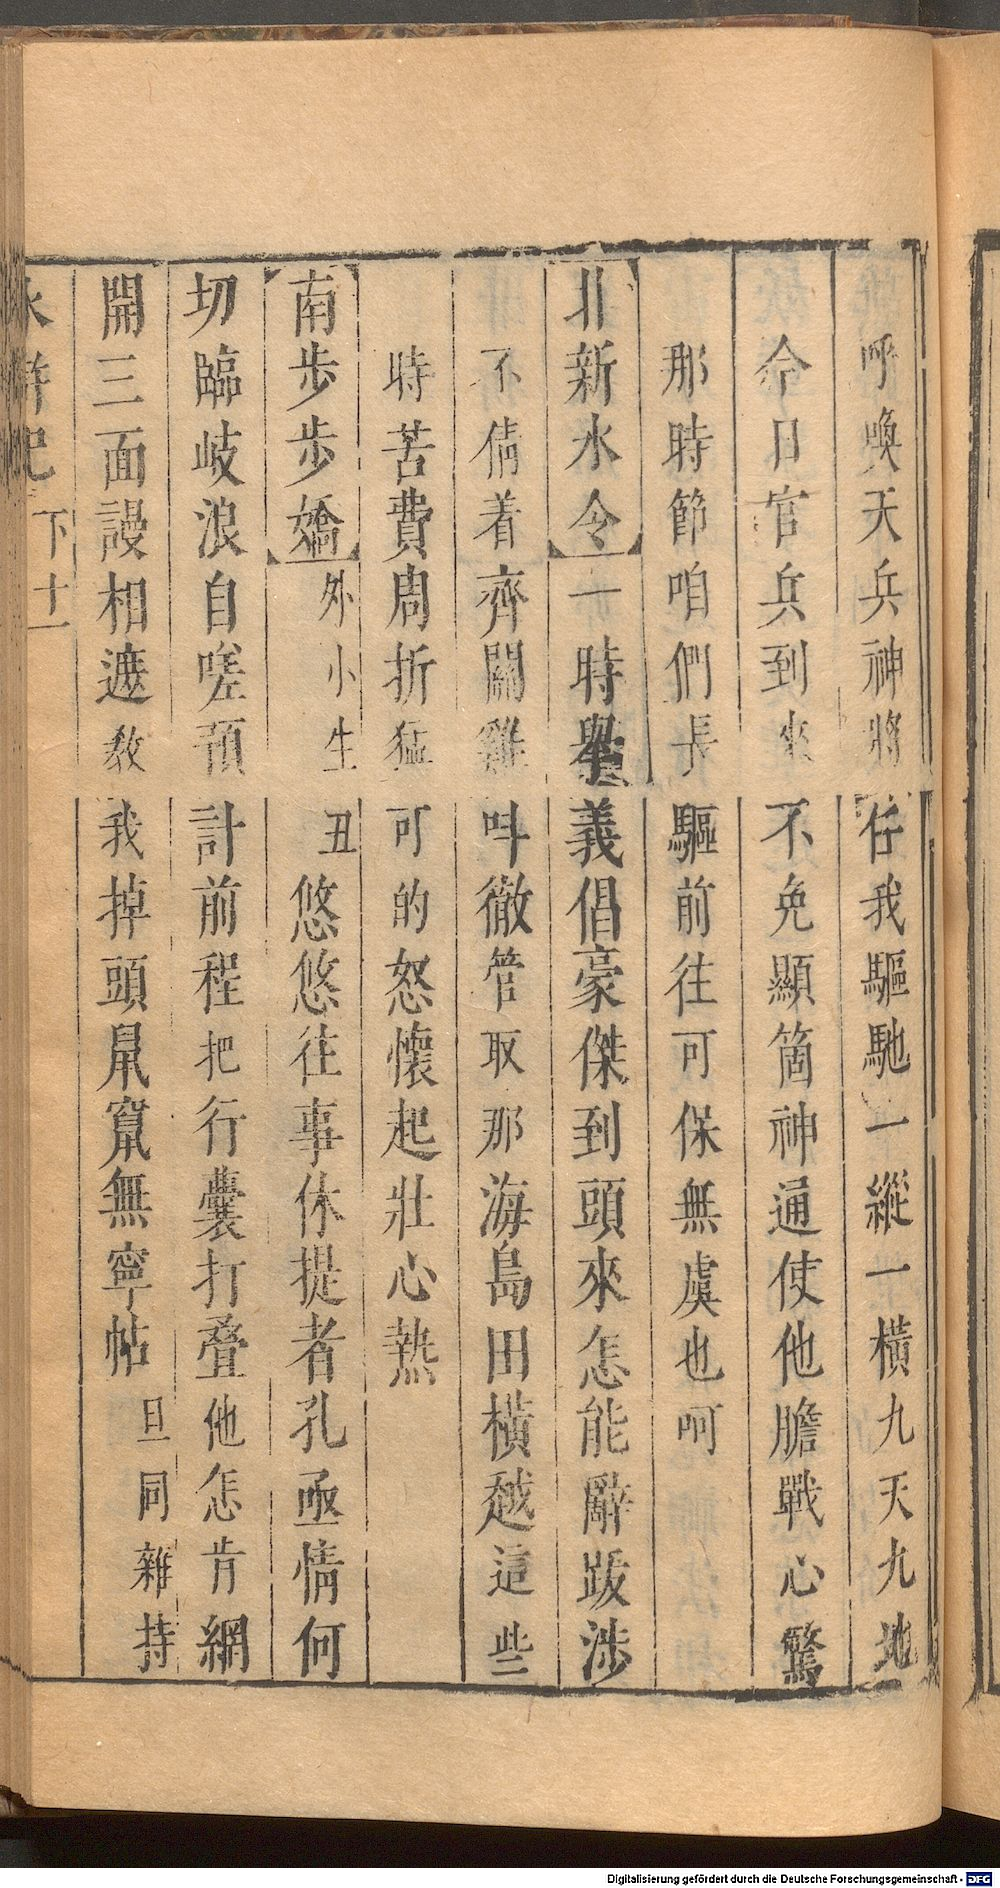 呼喚天兵神將任我驅馳一縱一橫九天九地
今日官兵到來不免顯箇神通使他膽戰心驚
那時節咱們長驅前往可保無虞也呵
北新水令一時舉義倡豪傑到頭來怎能辭跋涉
不倩着齊關雞呌徹管取那海島田橫越這些
時苦費周折猛可的怒懷起壯心熱
南步步嬌外小生丑悠悠往事休提者孔亟情何
切臨岐浪自嗟預計前程把行囊打疊他怎肯網
開三面謾相遮教我掉頭鼠竄無寧帖旦同雜持
水滸記
下
十一
Digitalisierung gefördert durch die Deutsche Forschungsgemeinschaft - DFG